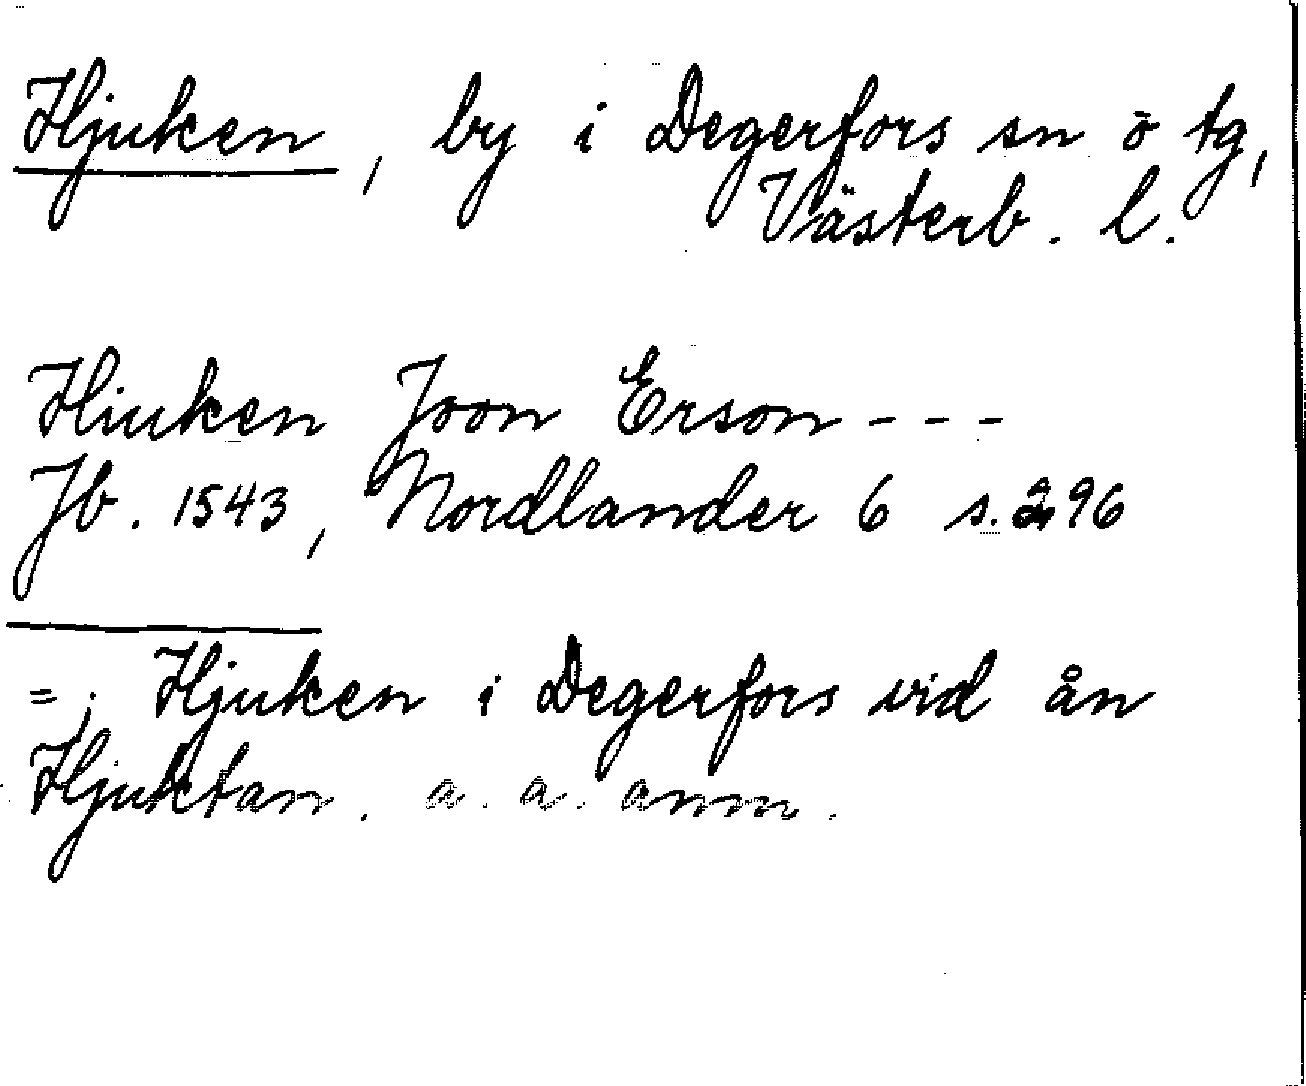 Hjuken, by i Degerfors sn o tg,
Västerb. l.
Hiuken Joon Erson - - -
Jb. 1543, Nordlander 6 s. 296
= j Hjuken i Degerfors vid ån
Hjuktan. a. a. anm.